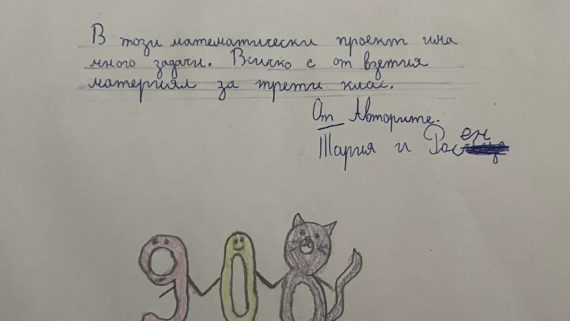 В този математически проект има
много задачи. Всичко е от взетия
материял за трети клас.
От Авторите.
Мария и Росен
908